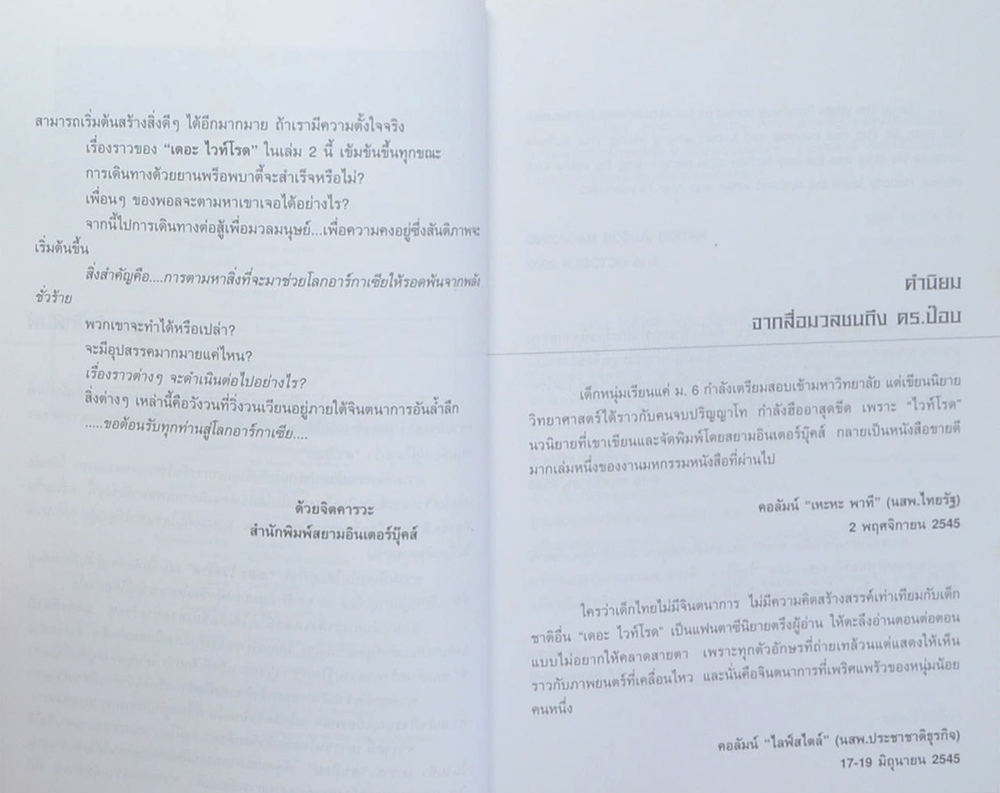 สามารถเริ่มต้นสร้างสิ่งดีๆ ได้อีกมากมาย ถ้าเรามีความตั้งใจจริง
เรื่องราวของ “เดอะ ไวท์โรด” ในเล่ม 2 นี้ เข้มข้นขึ้นทุกขณะ
การเดินทางด้วยยานพร็อพบาตี้จะสำเร็จหรือไม่?
เพื่อนๆ ของพอลจะตามหาเขาเจอได้อย่างไร?
จากนี้ไปการเดินทางต่อสู้เพื่อมวลมนุษย์...เพื่อความคงอยู่ซึ่งสันติภาพจะ
เริ่มต้นขึ้น
สิ่งสำคัญคือ....การตามหาสิ่งที่จะมาช่วยโลกอาร์กาเซียให้รอดพ้นจากพลัง
ชั่วร้าย
พวกเขาจะทำได้หรือเปล่า?
จะมีอุปสรรคมากมายแค่ไหน?
เรื่องราวต่างๆ จะดำเนินต่อไปอย่างไร?
สิ่งต่างๆ เหล่านี้คือวังวนที่วิ่งวนเวียนอยู่ภายใต้จินตนาการอันล้ำลึก
.....ขอต้อนรับทุกท่านสู่โลกอาร์กาเซีย....
ด้วยจิตคารวะ
สำนักพิมพ์สยามอินเตอร์บุ๊คส์
คำนิยม
จากสื่อมวลชนถึง ดร.ป๊อบ
เด็กหนุ่มเรียนแค่ ม. 6 กำลังเตรียมสอบเข้ามหาวิทยาลัย แต่เขียนนิยาย
วิทยาศาสตร์ได้ราวกับคนจบปริญญาโท กำลังฮือฮาสุดขีด เพราะ “ไวท์โรด”
นวนิยายที่เขาเขียนและจัดพิมพ์โดยสยามอินเตอร์บุ๊คส์ กลายเป็นหนังสือขายดี
มากเล่มหนึ่งของงานมหกรรมหนังสือที่ผ่านไป
คอลัมน์ “เหะหะ พาที” (นสพ.ไทยรัฐ)
2 พฤศจิกายน 2545
ใครว่าเด็กไทยไม่มีจินตนาการ ไม่มีความคิดสร้างสรรค์เท่าเทียมกับเด็ก
ชาติอื่น “เดอะ ไวท์โรด” เป็นแฟนตาซีนิยายตรึงผู้อ่าน ให้ตะลึงอ่านตอนต่อตอน
แบบไม่อยากให้คลาดสายตา เพราะทุกตัวอักษรที่ถ่ายเทล้วนแต่แสดงให้เห็น
ราวกับภาพยนตร์ที่เคลื่อนไหว และนั่นคือจินตนาการที่เพริศแพร้วของหนุ่มน้อย
คนหนึ่ง
คอลัมน์ “ไลฟ์สไตล์” (นสพ.ประชาชาติธุรกิจ)
17-19 มิถุนายน 2545